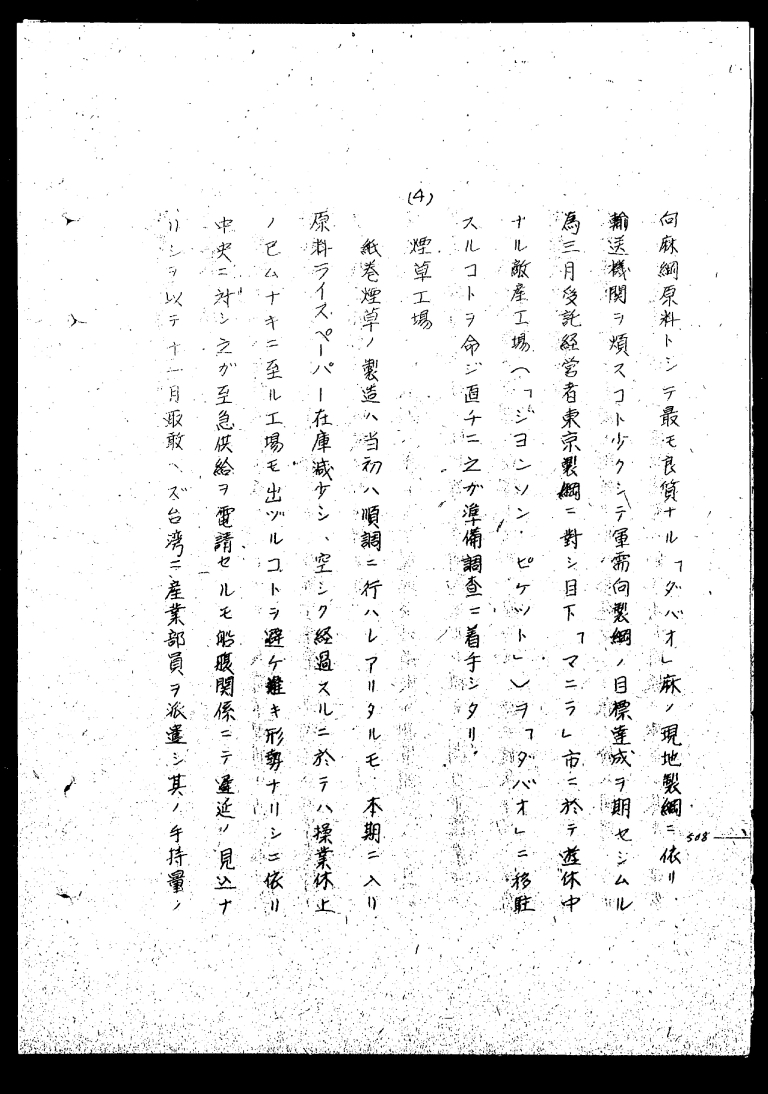 向麻綱原料トシテ最モ良質ナル「ダバオ」麻ノ現地製綱ニ依リ
輸送機関ヲ煩スコト少クシテ軍需向製綱ノ目標達成ヲ期セシムル
為三月受託経営者東京製綱ニ對シ目下「マニラ」市ニ於テ遊休中
ナル敵産工場(「ジヨンソン・ピケツト」)ヲ「ダバオ」ニ移駐
スルコトヲ命ジ直チニ之ガ準備調査ニ着手シタリ。
(4)
煙草工場
紙巻煙草ノ製造ハ当初ハ順調ニ行ハレアリタルモ本期ニ入リ
原料ライスペーパー在庫減少シ、空シク経過スルニ於テハ操業休止
ノ已ムナキニ至ル工場モ出ヅルコトヲ避ケ難キ形勢ナリシニ依リ
中央ニ対シ之ガ至急供給ヲ電請セルモ船腹関係ニテ遅延ノ見込ナ
リシヲ以テ十一月取敢ヘズ台湾ニ産業部員ヲ派遣シ其ノ手持量ノ
508